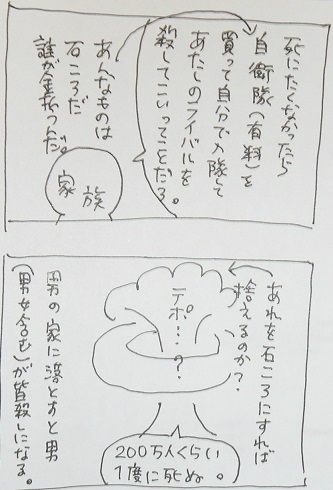 死にたくなかったら
自衛隊(有料)を
買って自分で入隊して
あたしのライバルを
殺してこいってことだろ。
あんなものは
石ころだ
誰が金払うんだ。
家族
あれを石ころにすれば
捨えるのか?
テポ…?
200万人くらい
1度に死ぬ。
男の家に落とすと男
(男女含む)が皆殺しになる。